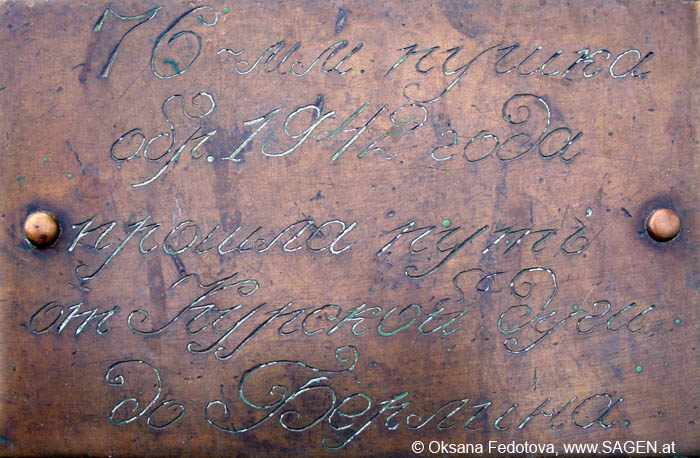 76-мм. пушка
обр. 1942 года
прошла путь
от Курской дуги
до Берлина.
© Oksana Fedotova, www.SAGEN.at